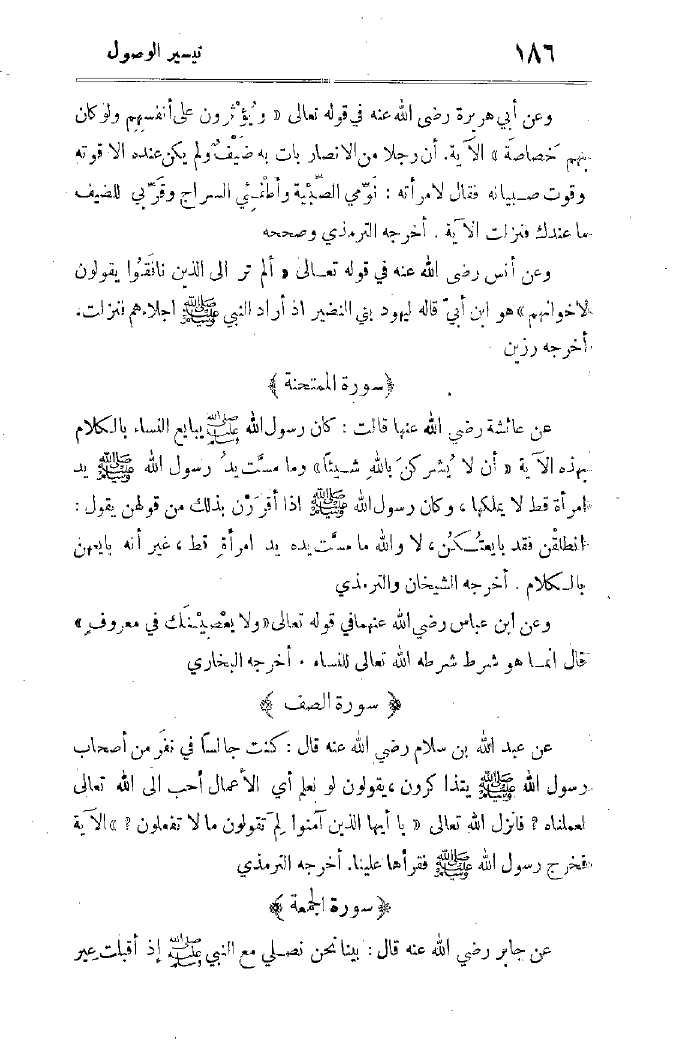 ١٨٦ تيسير الوصول
وعن أبي هريرة رضى الله عنه في قوله تعالى « ويُؤْثرون على أنفسهم ولو كان
بهم خصاصة » الآية. أن رجلا من الانصار بات به ضَيْفٌ ولم يكن عنده الا قوته
وقوت صبيانه فقال لامرأته : نَوِّمي الصِّبْية وأطفئِي السراج وقَرِّبي للضيف
ما عندك فنزلت الآية . أخرجه الترمذي وصححه
وعن أنس رضى الله عنه في قوله تعالى « ألم تر الى الذين نافَقُوا يقولون
لاخوانهم » هو ابن أبيّ قاله ليهود بني النضير اذ أراد النبي ﷺ اجلاءهم فنزلت.
أخرجه رزين
﴿ سورة الممتحنة ﴾
عن عائشة رضي الله عنها قالت : كان رسول الله ﷺ يبايع النساء بالكلام
بهذه الآية « أن لا يُشركنَ باللهِ شيئاً » وما مسَّت يدُ رسول الله ﷺ يد
امرأة قط لا يملكها ، وكان رسول الله ﷺ اذا أقرَرْن بذلك من قولهن يقول :
انطلقْن فقد بايعتُكُن ، لا والله ما مسَّت يده يد امرأةٍ قط ، غير أنه بايعهن
بالكلام . أخرجه الشيخان والترمذي
وعن ابن عباس رضي الله عنهما في قوله تعالى « ولا يعْصِيْنَك في معروفٍ »
قال انما هو شرط شرطه الله تعالى للنساء . أخرجه البخاري
﴿ سورة الصف ﴾
عن عبد الله بن سلام رضي الله عنه قال : كنت جالسًا في نفَر من أصحاب
رسول الله ﷺ يتذاكرون ، يقولون لو نعلم أي الأعمال أحب الى الله تعالى
لعملناه ؟ فانزل الله تعالى « يا أيها الذين آمنوا لِمَ تقولون ما لا تفعلون ؟ » الآية
فخرج رسول الله ﷺ فقرأها علينا. أخرجه الترمذي
﴿ سورة الجمعة ﴾
عن جابر رضي الله عنه قال : بينا نحن نصلي مع النبي ﷺ إذ أقبلت عِير